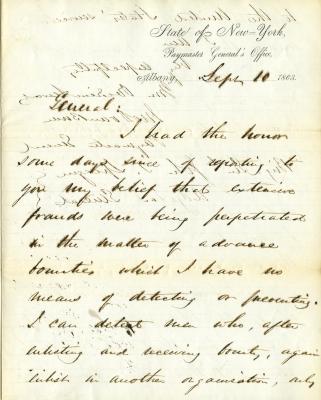 State of New-York,
Paymaster General's Office,
Albany, Sept 10 1863.
General:
I had the honor
some days since of reporting to
you my belief that extensive
frauds were being perpetrated
in the matter of advance
bounties which I have no
means of detecting or preventing.
I can detect men who, after
enlisting and receiving bounty, again
enlist in another organization, only